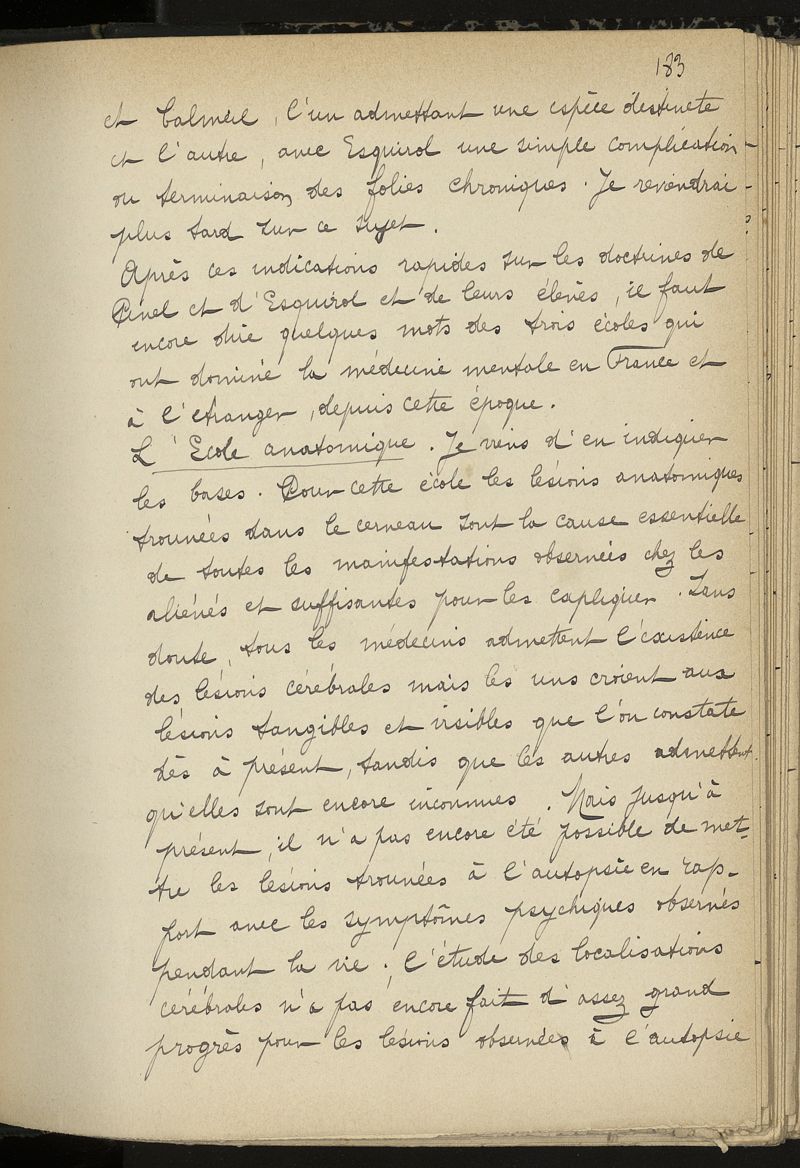 183
et Calmeil, l'un admettant une espèce distincte
et l'autre, avec Esquirol une simple complication
ou terminaison des folies chroniques. Je reviendrai
plus tard sur ce sujet.
Après ces indications rapides sur les doctrines de
Pinel et d'Esquirol et de leurs élèves, il faut
encore dire quelques mots des trois écoles qui
ont dominé la médecine mentale en France et
à l'etranger, depuis cette époque.
L'Ecole anatomique. Je viens d'en indiquer
les bases. Pour cette école les lésions anatomiques
trouvées dans le cerveau sont la cause essentielle
de toutes les manifestations observées chez les
aliénés et suffisantes pour les expliquer. Sans
doute, tous les médecins admettent l'existence
des lésions cérébrales mais les uns croient aux
lésions tangibles et visibles que l'on constate
dès à présent, tandis que les autres admettent
qu'elles sont encore inconnues. Mais jusqu'à
présent, il n'a pas encore été possible de met-
tre les lésions trouvées à l'autopsie en rap-
port avec les symptômes psychiques observés
pendant la vie. L'étude des localisations
cérébrales n'a pas encore fait d'assez grand
progrès pour les lésions observées à l'autopsie